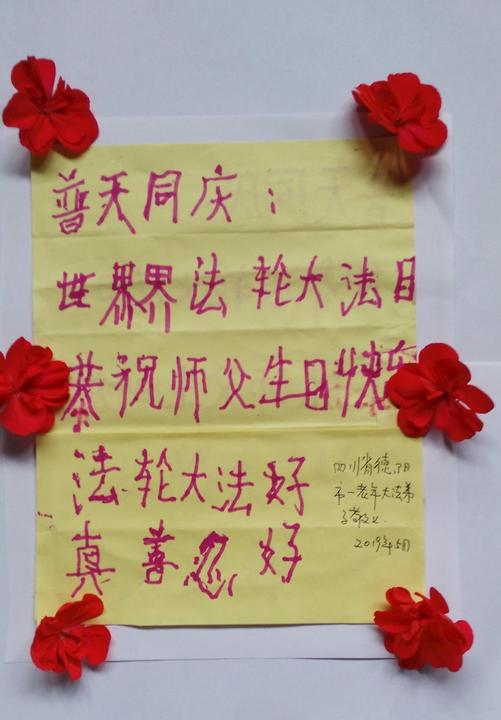 普天同庆：
世界界法轮大法日
恭祝师父生日快乐
法轮大法好
真善忍好
四川省德阳
市一老年大法弟
子敬上
2019年5月